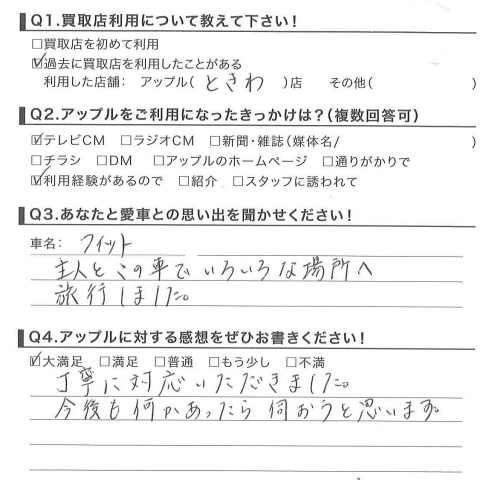 Q1.買取店利用について教えて下さい!
□買取店を初めて利用
☑過去に買取店を利用したことがある
利用した店舗: アップル( ときわ )店 その他( )
Q2.アップルをご利用になったきっかけは?(複数回答可)
☑テレビCM □ラジオCM □新聞・雑誌(媒体名/ )
□チラシ □DM □アップルのホームページ □通りがかりで
☑利用経験があるので □紹介 □スタッフに誘われて
Q3.あなたと愛車との思い出を聞かせください!
車名: フィット
主人とこの車でいろいろな場所へ
旅行しました。
Q4.アップルに対する感想をぜひお書きください!
☑大満足 □満足 □普通 □もう少し □不満
丁寧に対応いただきました。
今後も何かあったら伺おうと思います。